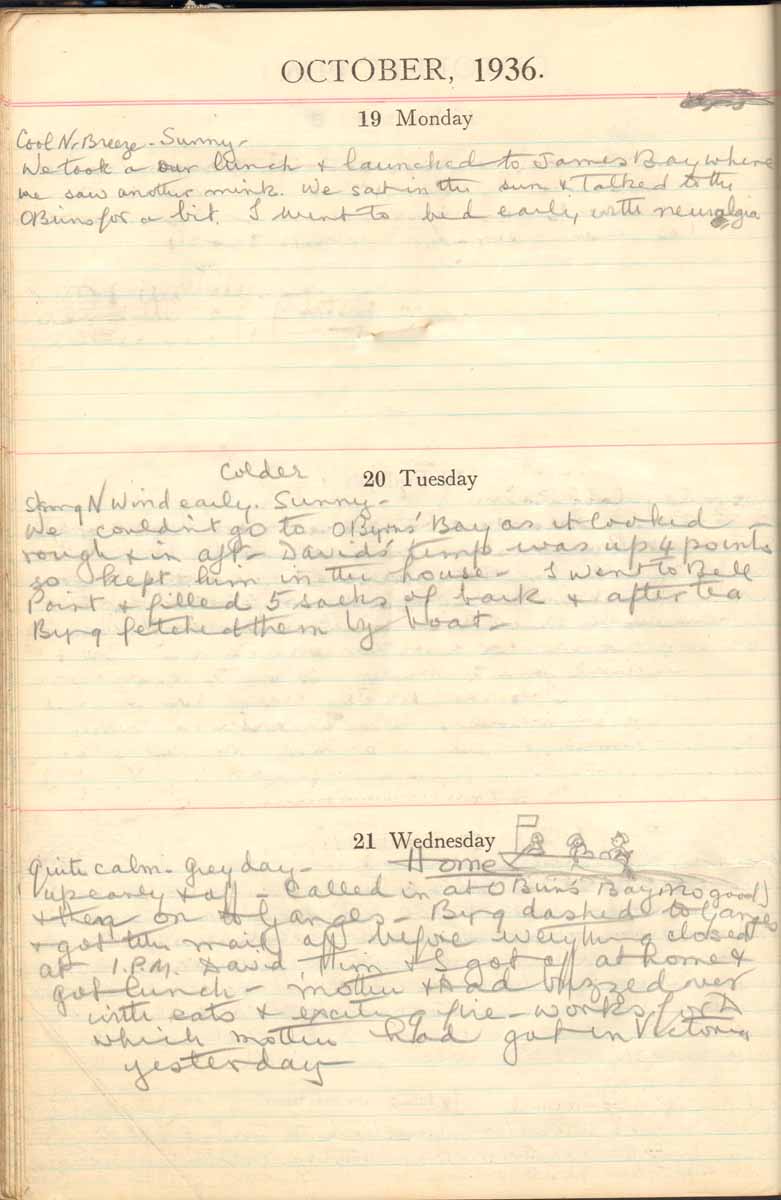 OCTOBER, 1936.
19 Monday
Cool N. Breeze - Sunny -
We took a our lunch & launched to James Bay where
we saw another mink. We sat in the sun & talked to the
OBirns for a bit. I went to bed early, with neuralgia
Colder
20 Tuesday
Strong N Wind early. Sunny -
We couldn't go to OByrns' Bay as it looked
rough & in aft - David's temp was up 4 points
so kept him in the house - I went to Bell
Point & filled 5 sacks of bark & after tea
Byrq fetched them by boat -
21 Wednesday
Quite calm - Grey day -
Home
up early & off - Called in at OBirn's Bay, (no good)
& then on to Ganges - Byrq dashed to Ganges
& got the mail off before everything closed
at 1. P.M. David, & I got off at home &
got lunch - mother & Dad buzzed over
with eats & exciting fire - works for D
which mother had got in Victoria
yesterday